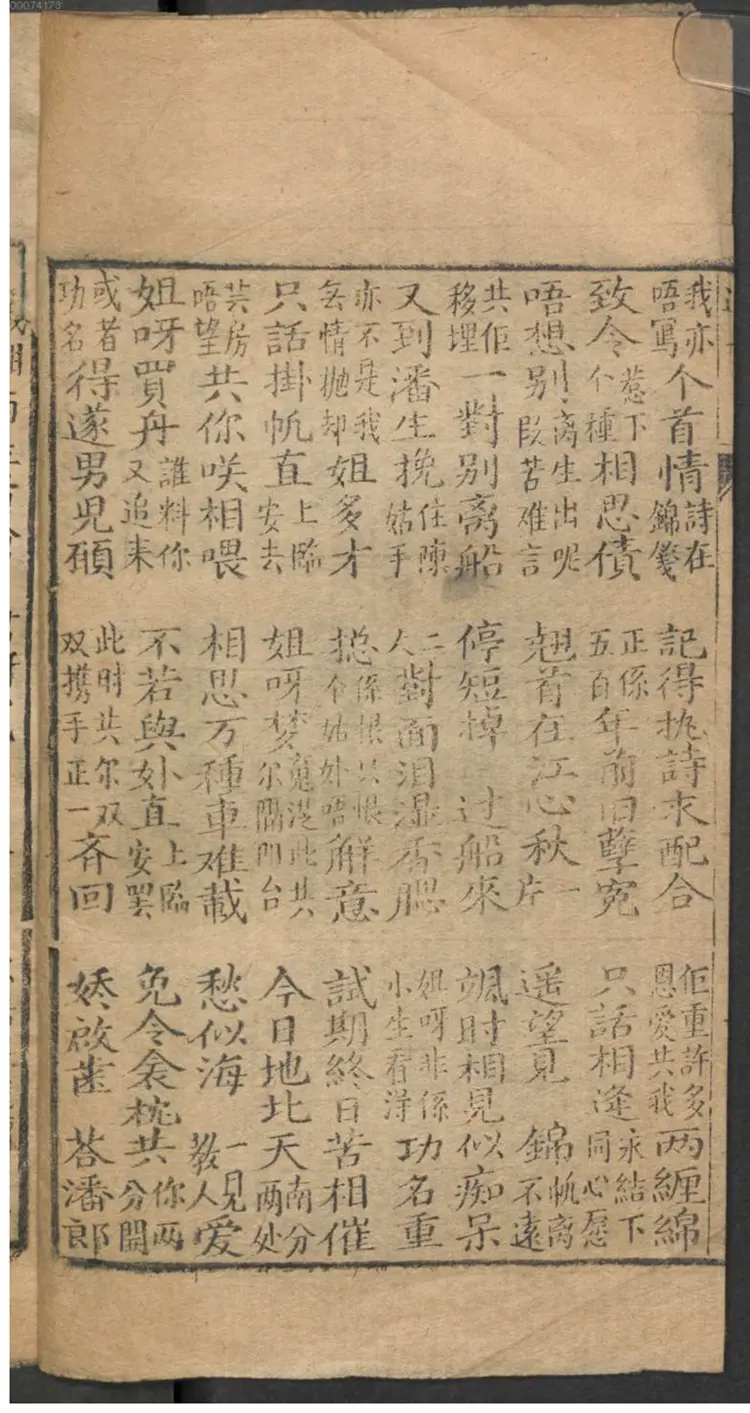 00074173
我亦唔寫个首情詩在錦箋 記得执詩求配合 佢重許多恩爱共我两缠綿
致令惹下个種相思債 正係五百年前旧孽冤 只話相逢永結下同心愿
唔想别离生出呢段苦难言 翘首在江心秋一片 遥望見 錦帆离不遠
共佢移埋一對别离船 停短掉 过船來 飒时相見似痴呆
又到潘生挽住陳姑手 二人對面泪湿香腮 姐呀非係小生看淂功名重
亦不是我無情抛却姐多才 捴係恨只恨个姑外唔解意 試期終日苦相催
只話掛帆直上臨安去 姐呀梦魂從此共尔隔阳台 今日地北天南分两处
芸房唔望共你咲相喂 相思万種車难載 愁似海 一見教人爱
姐呀買舟誰料你又追来 不若與外直上臨安罢 免令衾枕共你两分開
或者功名得遂男兒願 此时共尔双双携手正一斉回 娇啟齒 答潘郎